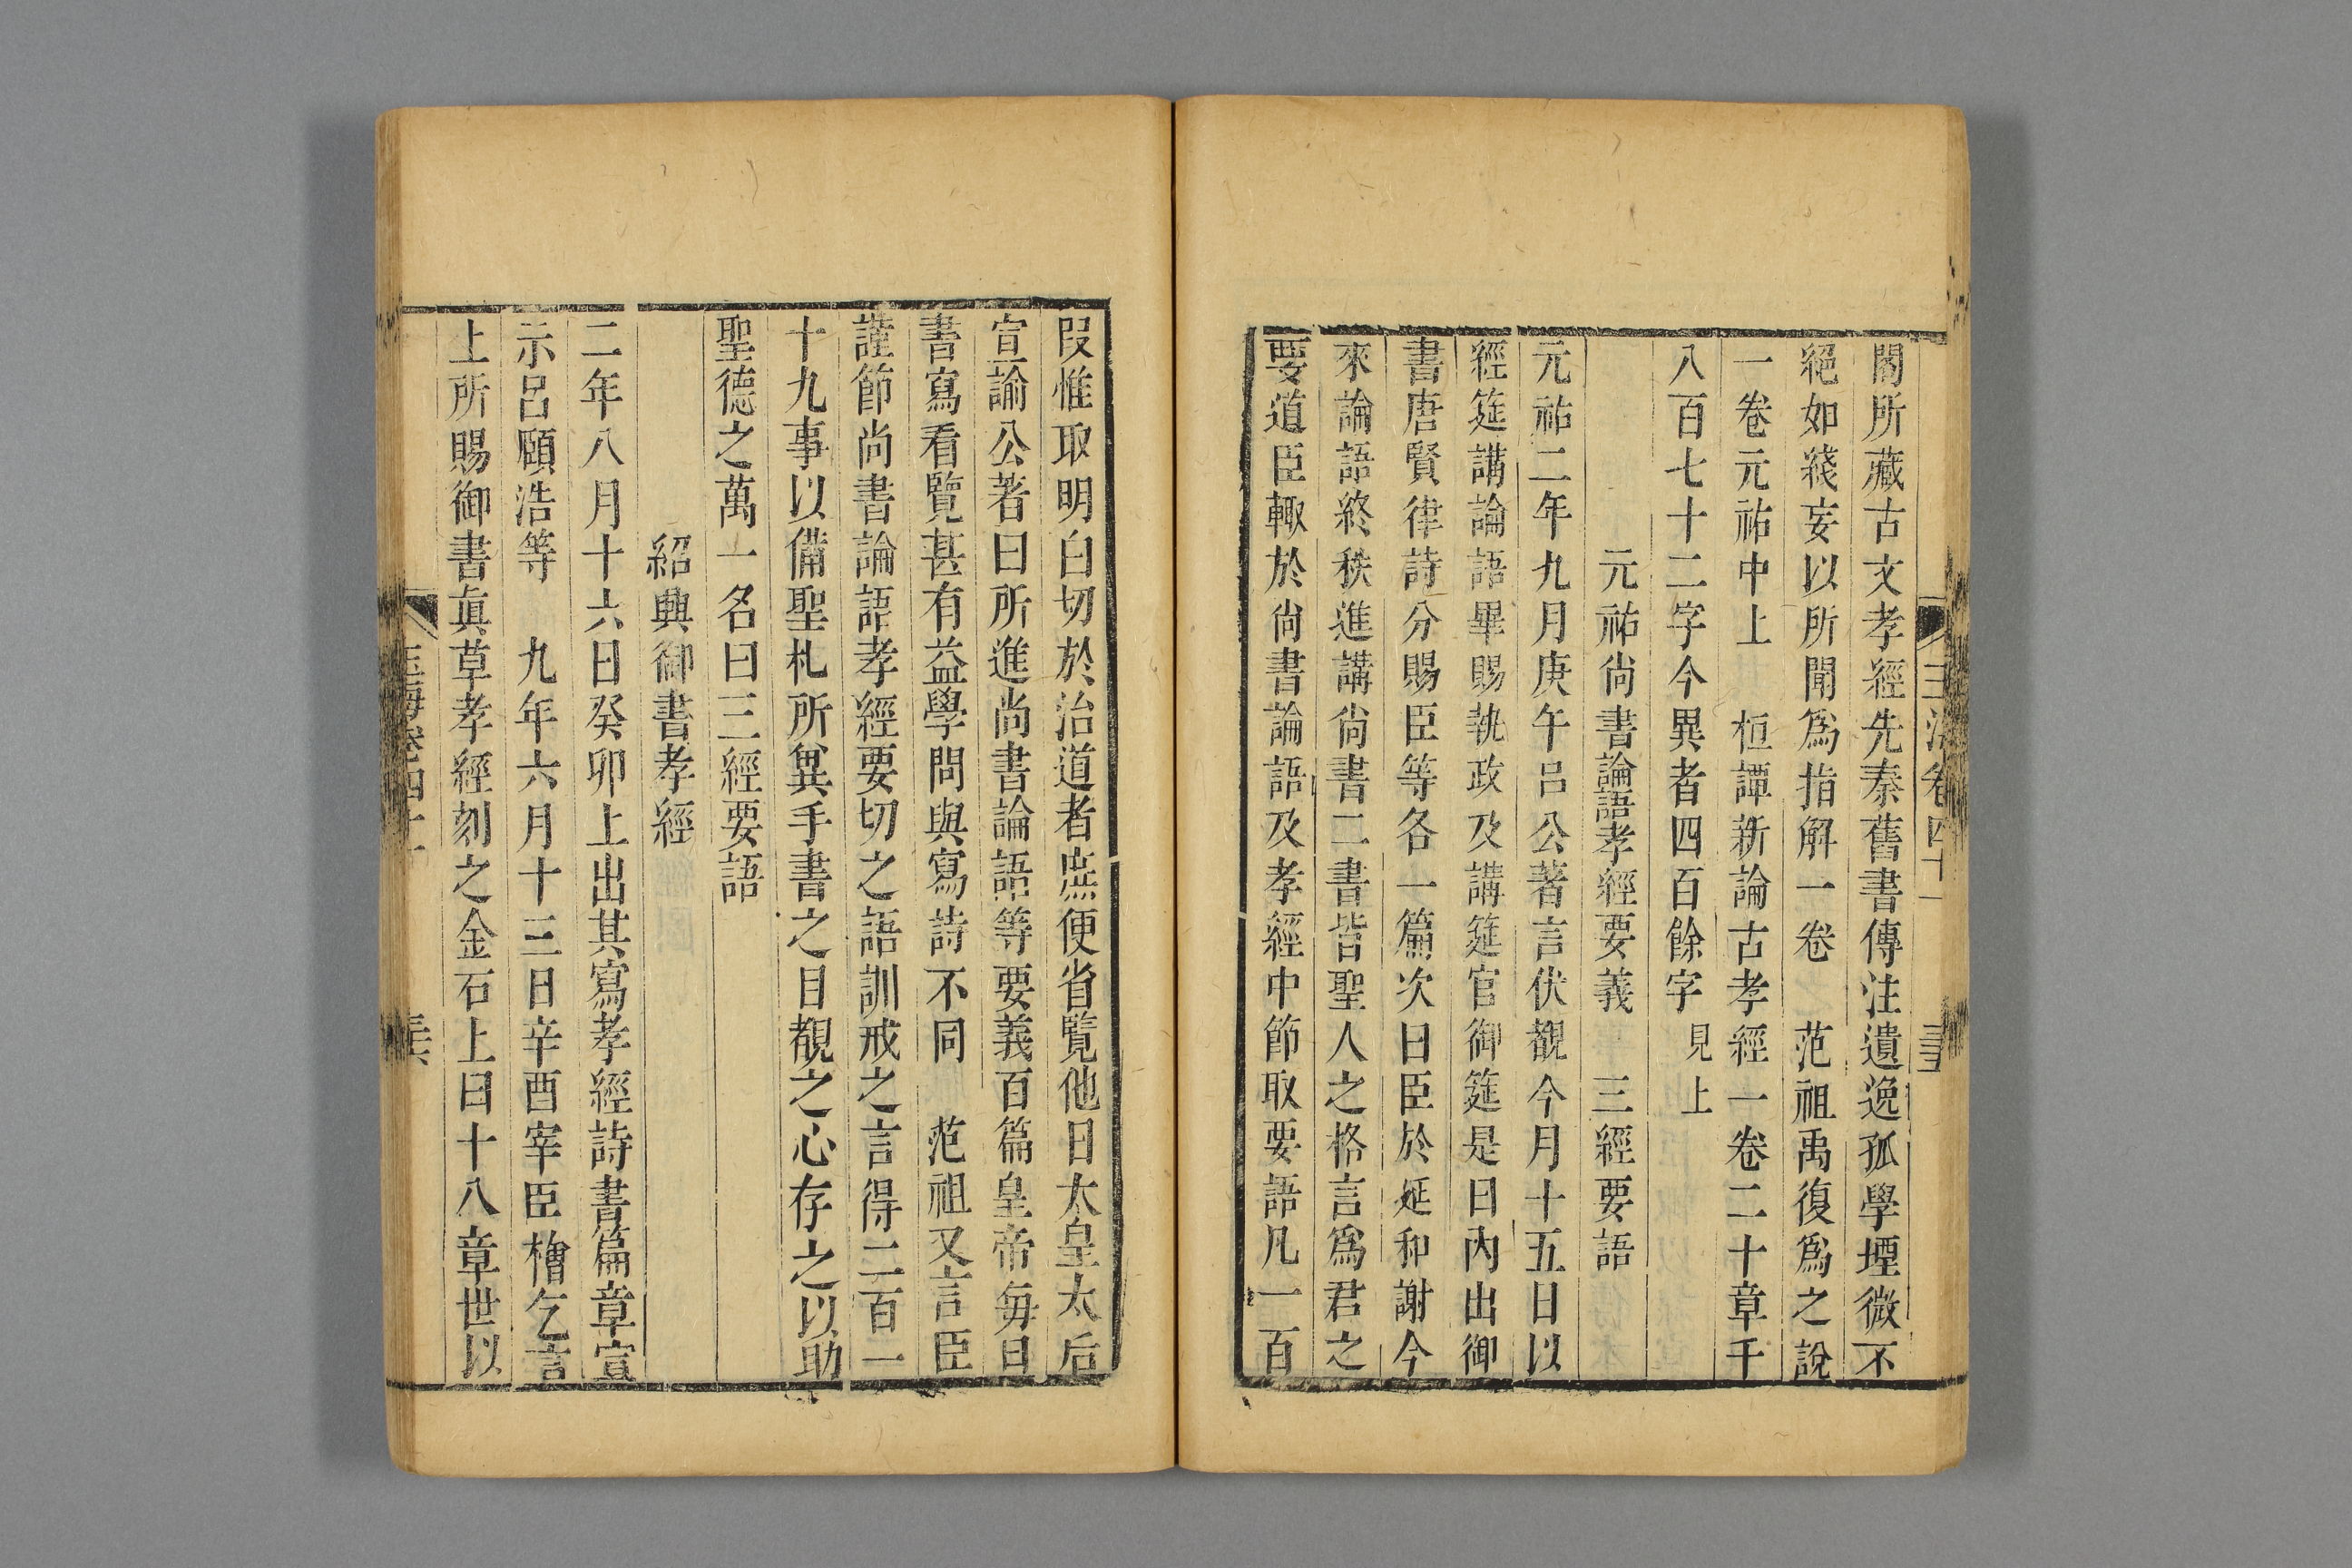 玉海卷四十一
閣所藏古文孝經先秦舊書傳注遺逸孤學堙微不
絕如綫妄以所聞爲指解一卷 范祖禹復爲之說
一卷元祐中上 桓譚新論古孝經一卷二十章千
八百七十二字今異者四百餘字見上
元祐尚書論語孝經要義 三經要語
元祐二年九月庚午呂公著言伏覩今月十五日以
經筵講論語畢賜執政及講筵官御筵是日內出御
書唐賢律詩分賜臣等各一篇次日臣於延和謝今
來論語終秩進講尚書二書皆聖人之格言爲君之
要道臣輙於尚書論語及孝經中節取要語凡一百
段惟取明白切於治道者庶便省覽他日太皇太后
宣諭公著曰所進尚書論語等要義百篇皇帝每日
書寫看覽甚有益學問與寫詩不同 范祖又言臣
謹節尚書論語孝經要切之語訓戒之言得二百一
十九事以備聖札所兾手書之目覩之心存之以助
聖德之萬一名曰三經要語
紹興御書孝經
二年八月十六日癸卯上出其寫孝經詩書篇章宣
示呂頤浩等 九年六月十三日辛酉宰臣檜乞言
上所賜御書眞草孝經刻之金石上曰十八章世以
玉海卷四十一